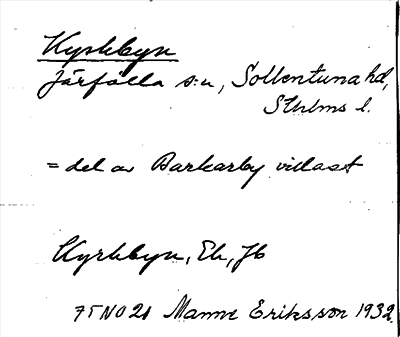 Kyrkbyn
Järfälla s:n, Sollentuna hd,
Sthlms l.
= del av Barkarby villast
Kyrkbyn, Ek, Jb
75 NO 21 Manne Eriksson 1932.